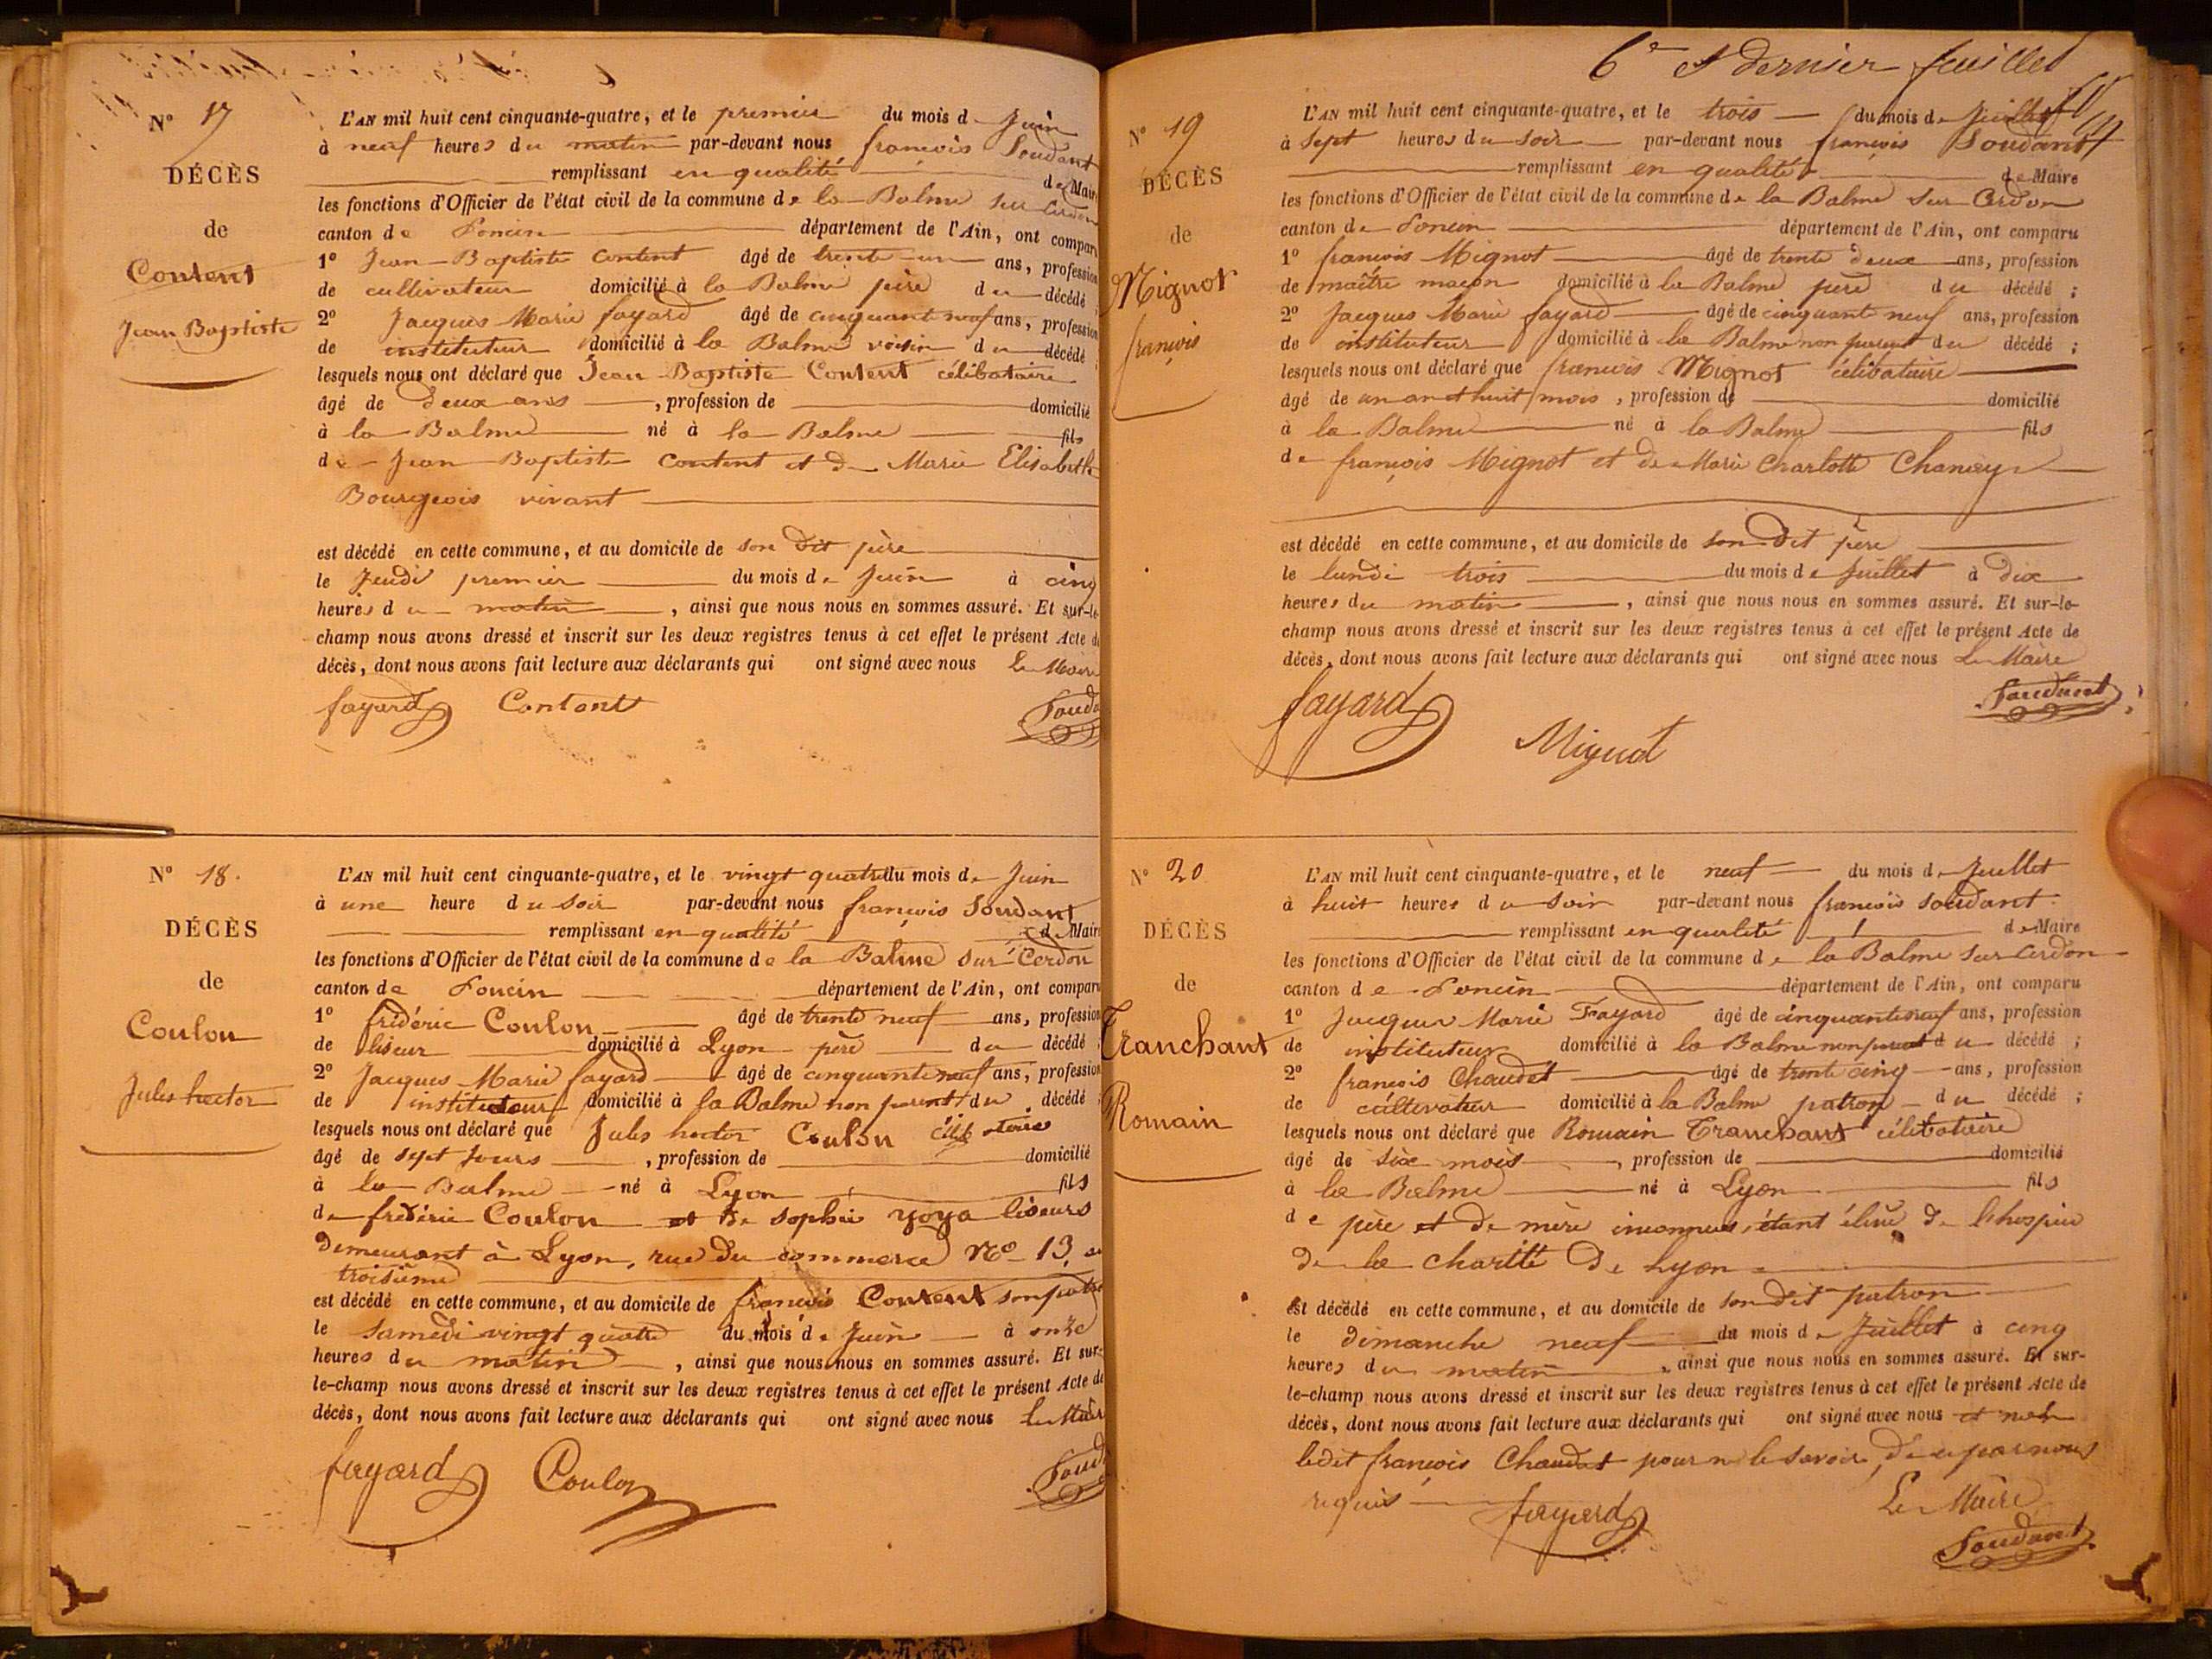 N° 17
DÉCÈS
de
Content
Jean Baptiste
L'AN mil huit cent cinquante-quatre, et le premier du mois de Juin
à neuf heures du matin par-devant nous françois Soudant
remplissant en qualité de Maire
les fonctions d'Officier de l'état civil de la commune de la Balme sur Cerdon
canton de Poncin département de l'Ain, ont comparu
1° Jean-Baptiste Content âgé de trente-un ans, profession
de cultivateur domicilié à la Balme père du décédé ;
2° Jacques Marie fayard âgé de cinquant neuf ans, profession
de instituteur domicilié à la Balme voisin du décédé ;
lesquels nous ont déclaré que Jean-Baptiste Content célibataire
âgé de deux ans , profession de domicilié
à la Balme né à la Balme fils
de Jean Baptiste Content et de Marie Elisabeth
Bourgeois vivant
est décédé en cette commune, et au domicile de son dit père
le Jeudi premier du mois de Juin à cinq
heures du matin , ainsi que nous nous en sommes assuré. Et sur-le-
champ nous avons dressé et inscrit sur les deux registres tenus à cet effet le présent Acte de
décès, dont nous avons fait lecture aux déclarants qui ont signé avec nous Le Maire
fayard Content Souda
N° 18.
DÉCÈS
de
Coulon
Jules hector
L'AN mil huit cent cinquante-quatre, et le vingt quatre du mois de Juin
à une heure du soir par-devant nous françois Soudant
remplissant en qualité de Maire
les fonctions d'Officier de l'état civil de la commune de la Balme sur Cerdon
canton de Poncin département de l'Ain, ont comparu
1° frédéric Coulon âgé de trente neuf ans, profession
de liseur domicilié à Lyon père du décédé
2° Jacques Marie fayard âgé de cinquante neuf ans, profession
de instituteur domicilié à la Balme non parent du décédé
lesquels nous ont déclaré que Jules hector Coulon
âgé de sept Jours , profession de domicilié
à la Balme né à Lyon fils
de fréderic Coulon et de sophie yoya liseurs
demeurant à Lyon, rue du commerce N° 13, au
troisième
est décédé en cette commune, et au domicile de françois Content son patron
le samedi vingt quatre du mois de Juin à onze
heures du matin , ainsi que nous nous en sommes assuré. Et sur-
le-champ nous avons dressé et inscrit sur les deux registres tenus à cet effet le présent Acte de
décès, dont nous avons fait lecture aux déclarants qui ont signé avec nous Le Maire
fayard Coulon Soud
6e et dernier feuillet
N° 19
DÉCÈS
de
Mignot
françois
L'AN mil huit cent cinquante-quatre, et le trois du mois de Juillet
à Sept heures du soir par-devant nous françois Soudant
remplissant en qualité de Maire
les fonctions d'Officier de l'état civil de la commune de la Balme sur Cerdon
canton de Poncin département de l'Ain, ont comparu
1° françois Mignot âgé de trente deux ans, profession
de maître maçon domicilié à la Balme père du décédé ;
2° Jacques Marie fayard âgé de cinquant neuf ans, profession
de instituteur domicilié à la Balme non parent du décédé ;
lesquels nous ont déclaré que françois Mignot célibataire
âgé de un an et huit mois , profession de domicilié
à la Balme né à la Balme fils
de françois Mignot et de Marie Charlotte Chanay
est décédé en cette commune, et au domicile de son dit père
le lundi trois du mois de Juillet à dix
heures du matin , ainsi que nous nous en sommes assuré. Et sur-le-
champ nous avons dressé et inscrit sur les deux registres tenus à cet effet le présent Acte de
décès, dont nous avons fait lecture aux déclarants qui ont signé avec nous Le Maire
fayard Soudant
Mignot
N° 20
DÉCÈS
de
Tranchant
Romain
L'AN mil huit cent cinquante-quatre, et le neuf du mois de Juillet
à huit heures du soir par-devant nous françois Soudant
remplissant en qualité de Maire
les fonctions d'Officier de l'état civil de la commune de la Balme sur Cerdon
canton de Poncin département de l'Ain, ont comparu
1° Jacques Marie Fayard âgé de cinquante neuf ans, profession
de instituteur domicilié à la Balme non parent du décédé ;
2° françois Chaudet âgé de trente cinq ans, profession
de cultivateur domicilié à la Balme patron du décédé ;
lesquels nous ont déclaré que Romain Tranchant célibataire
âgé de six mois , profession de domicilié
à la Balme né à Lyon fils
de père et de mère inconnus, étant élève de l'hospice
de la charité de Lyon
est décédé en cette commune, et au domicile de son dit patron
le dimanche neuf du mois de Juillet à cinq
heures du matin , ainsi que nous nous en sommes assuré. Et sur-
le-champ nous avons dressé et inscrit sur les deux registres tenus à cet effet le présent Acte de
décès, dont nous avons fait lecture aux déclarants qui ont signé avec nous et non
ledit françois Chaudet pour ne le savoir, de ce par nous
requis
fayard Le Maire
Soudant